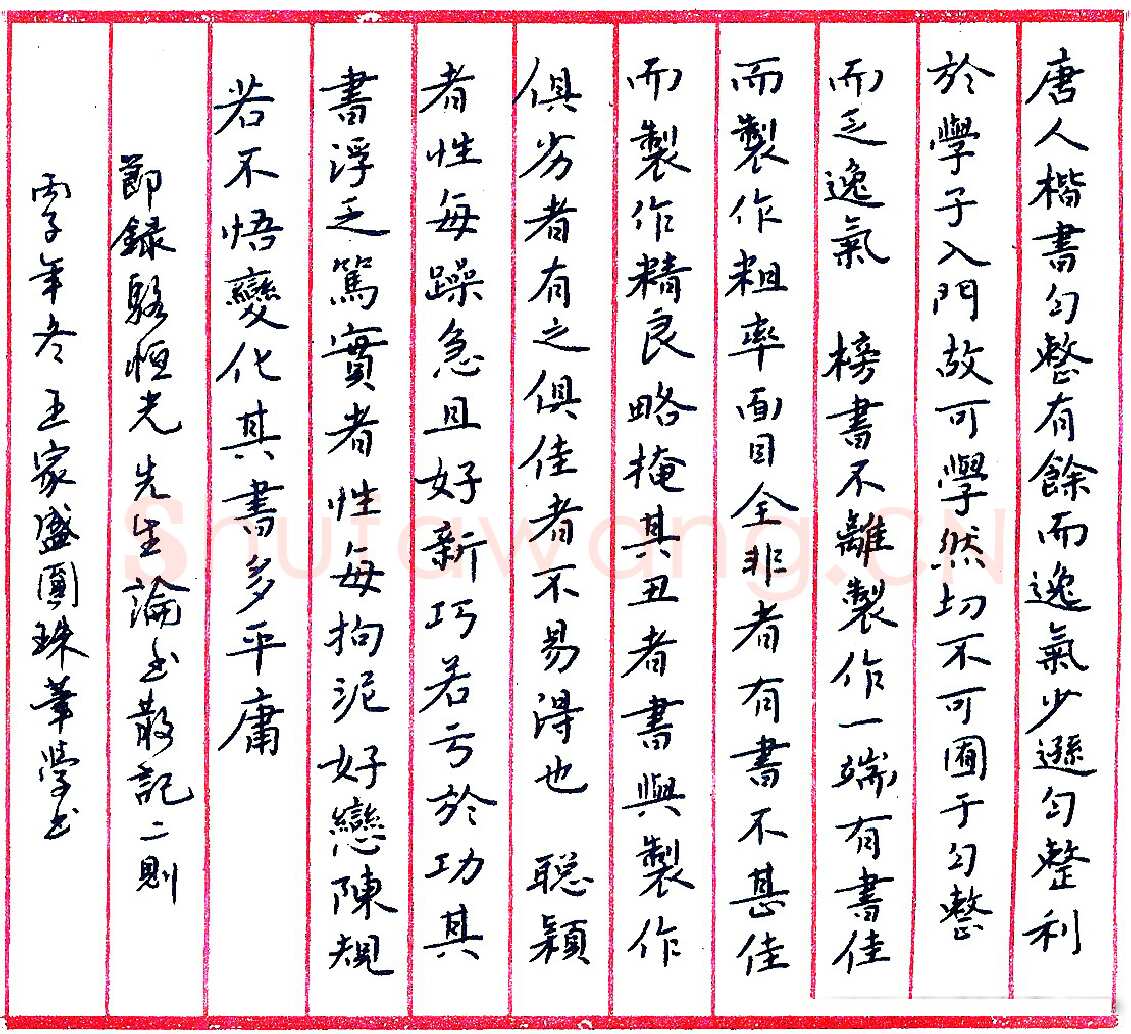 唐人楷書匀整有餘而逸氣少遜匀整利
於學子入門故可學然切不可囿于匀整
而乏逸氣 榜書不離製作一端有書佳
而製作粗率面目全非者有書不甚佳
而製作精良略掩其丑者書與製作
俱劣者有之俱佳者不易得也 聪穎
者性每躁急且好新巧若亏於功其
書浮乏篤實者性每拘泥好戀陳規
若不悟變化其書多平庸
節録駱恒光先生論书散記二則
丙子年冬王家盛圓珠筆學书
Shufawang.CN